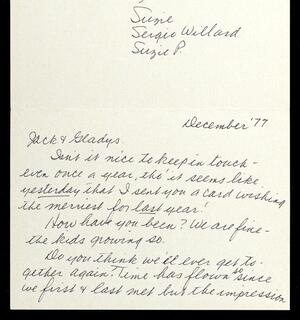 Suzie
Sergio Willard
Suzie P.
December '77
Jack & Gladys
Isn't it nice to keep in touch -
even once a year, tho' it seems like
yesterday that I sent you a card wishing
the merriest for last year!
How have you been? We are fine -
the kids growing so.
Do you think we'll ever get to-
gether again? Time has flown so since
we first & last met but the impression